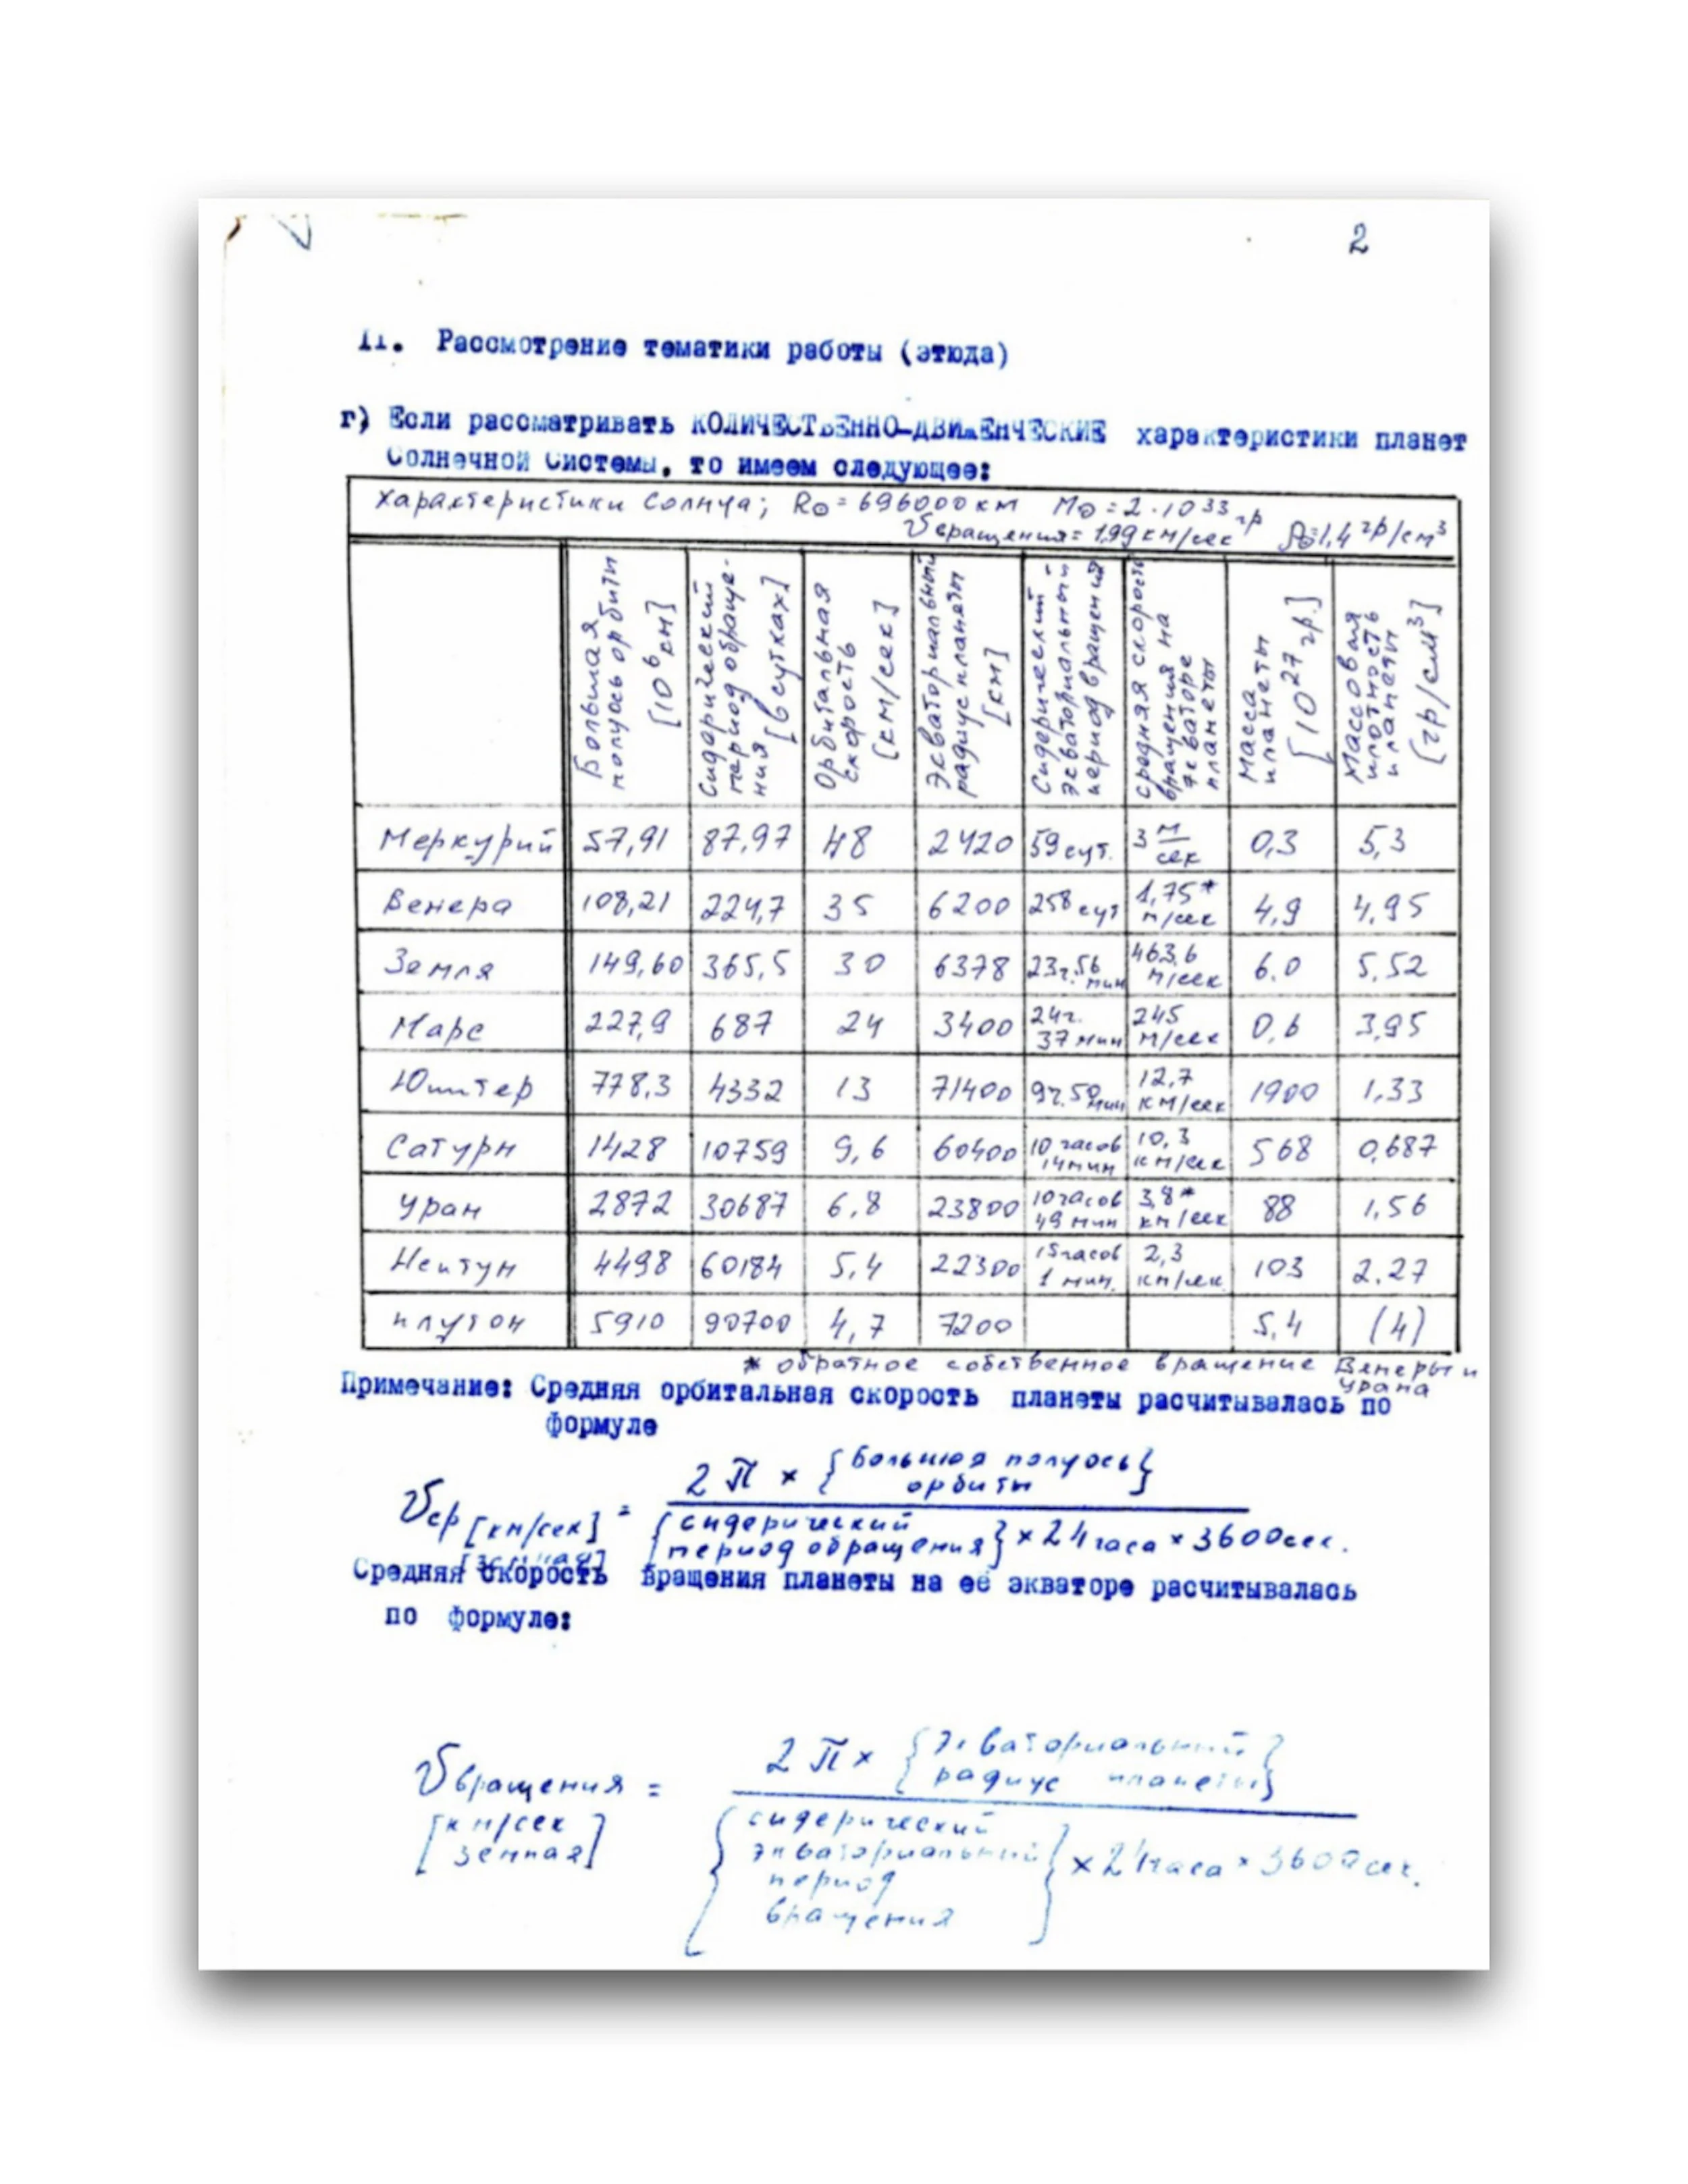 2
II. Рассмотрение тематики работы (этюда)
г) Если рассматривать КОЛИЧЕСТВЕННО-ДВИЖЕНЧЕСКИЕ характеристики планет
Солнечной Системы, то имеем следующее:
Характеристики Солнца; R⊙ = 696000 км M⊙ = 2·10³³ гр
Vвращения = 1,99 км/сек ρ⊙=1,4 гр/см³
Большая полуось орбиты [10⁶ км]
Сидерический период обраще-ния [в сутках]
Орбитальная скорость [км/сек]
Экваториальный радиус планеты [км]
Сидерический экваториальный период вращения
Средняя скорость вращения на экваторе планеты
Масса планеты [10²⁷ гр.]
Массовая плотность планеты [гр/см³]
Меркурий 57,91 87,97 48 2420 59 сут. 3 м/сек 0,3 5,3
Венера 108,21 224,7 35 6200 258 сут 1,75* м/сек 4,9 4,95
Земля 149,60 365,5 30 6378 23ч.56 мин 463,6 м/сек 6.0 5,52
Марс 227,9 687 24 3400 24ч. 37 мин 245 м/сек 0,6 3,95
Юпитер 778,3 4332 13 71400 9ч.50 мин 12,7 км/сек 1900 1,33
Сатурн 1428 10759 9,6 60400 10 часов 14 мин 10,3 км/сек 568 0,687
Уран 2872 30687 6,8 23800 10 часов 49 мин 3,8* км/сек 88 1,56
Нептун 4498 60184 5,4 22300 15 часов 1 мин. 2,3 км/сек 103 2.27
Плутон 5910 90700 4,7 7200 5,4 (4)
* обратное собственное вращение Венеры и
Урана
Примечание: Средняя орбитальная скорость планеты расчитывалась по
формуле
Vср [км/сек] = 2π × {большая полуось орбиты}
{сидерический период обращения} × 24 часа × 3600 сек.
[земная]
Средняя скорость вращения планеты на её экваторе расчитывалась
по формуле:
Vвращения = 2π × {экваториальный радиус планеты}
[км/сек земная]
{сидерический экваториальный период вращения} × 24 часа × 3600 сек.